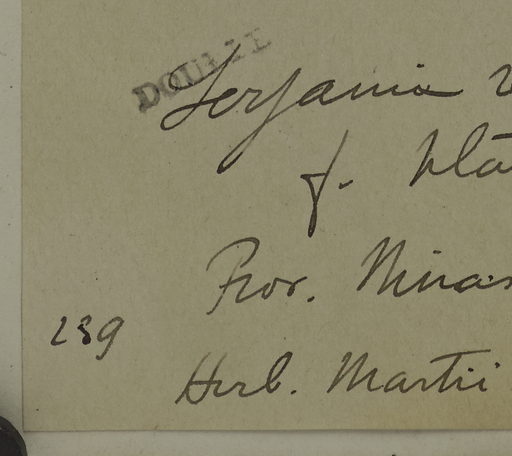 DOUBLE
Serjania
f.
Prov. Minas
239
Herb. Martii